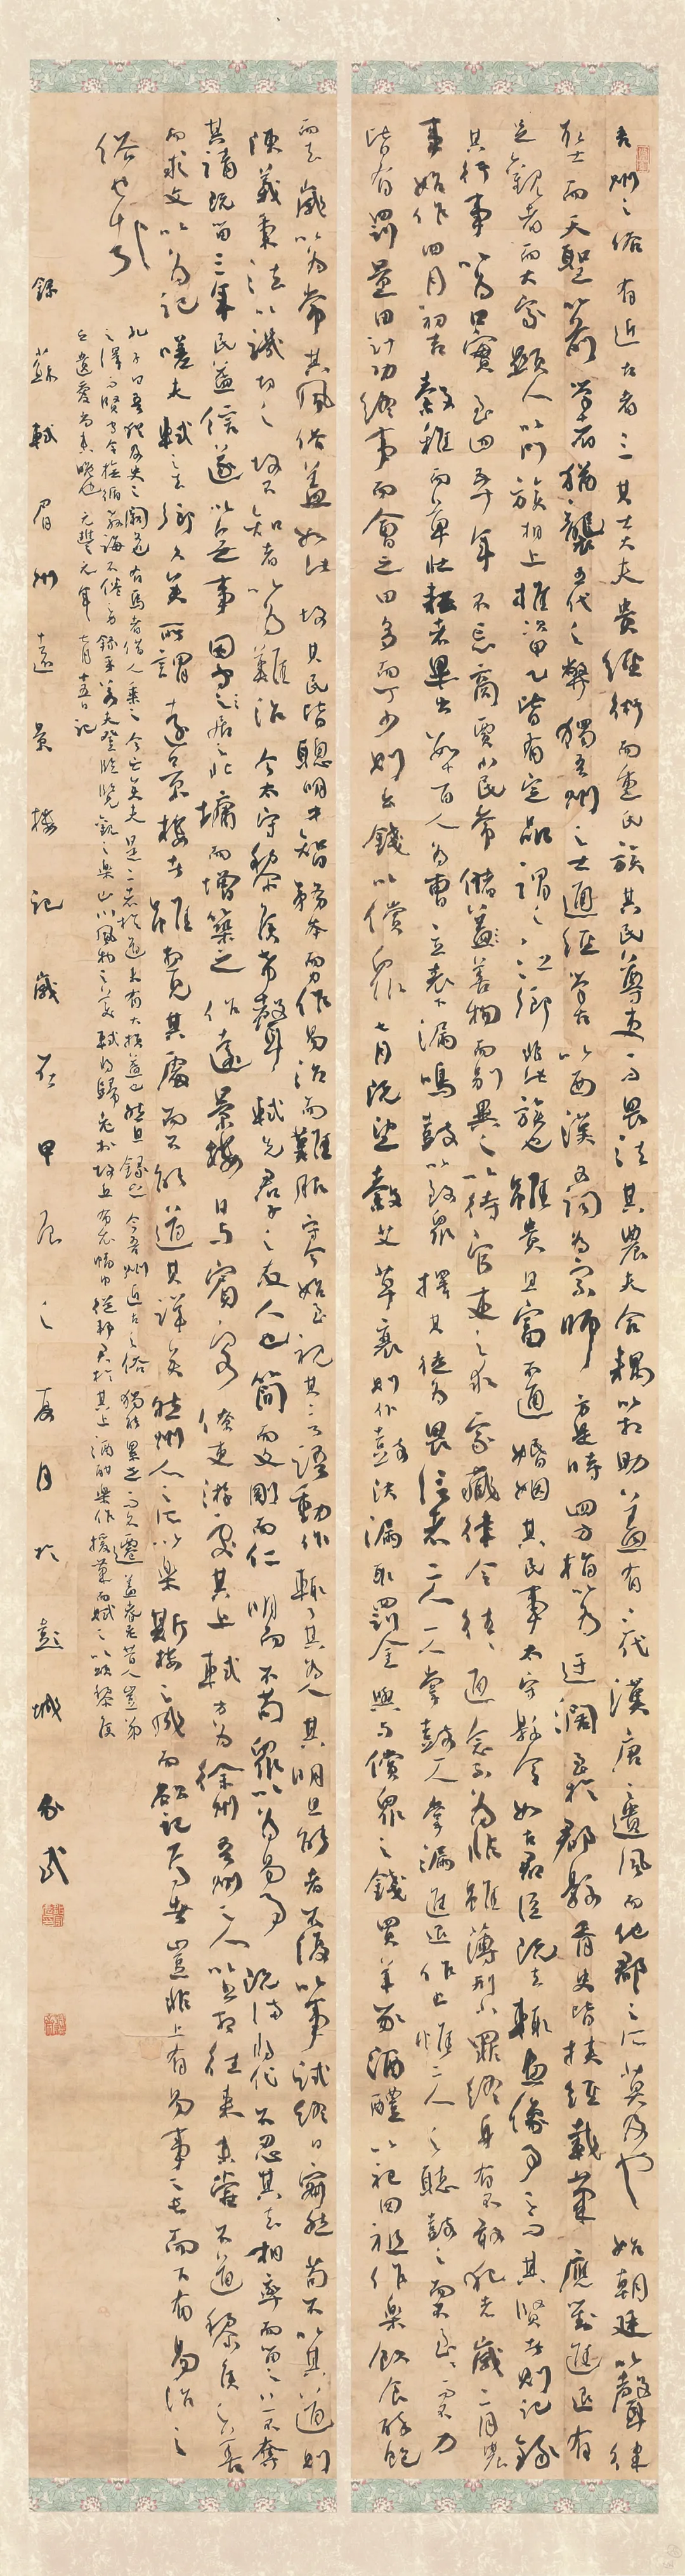 吾州之俗有近古者三其士大夫貴經術而重氏族其民尊吏而畏法其農夫合耦以相助蓋有三代漢唐之遺風而他郡之所莫及也始朝廷以聲律
取士而天聖以前學者猶襲五代之弊獨吾州之士通經學古以西漢文詞為宗師方是時四方指以為迂闊至於郡縣胥史皆挾經載筆應對進退有
足觀者而大家顯人以門族相上推次甲乙皆有定品謂之江鄉非此族也雖貴且富不通婚姻其民事太守縣令如古君臣既去輒畫像事之而其賢者則記錄
其行事以為口實至四五十年不忘商賈小民常儲善物而別異之以待官吏之求家藏律令往往通念而不以為非雖薄刑小罪終身有不敢犯者歲二月農
事始作四月初吉穀稚而草壯耘者畢出數十百人為曹立表下漏鳴鼓以致眾擇其徒為眾所畏信者二人一人掌鼓一人掌漏進退作止惟二人之聽鼓之而不至至而不力
皆有罰量田計功終事而會之田多而丁少則出錢以償眾七月既望穀艾草衰則仆鼓決漏取罰金與償眾之錢買羊豕酒醴以祀田祖作樂飲食醉飽
而去歲以為常其風俗蓋如此故其民皆聰明才智務本而力作易治而難服守令始至視其言語動作輒了其為人其明且能者不復以事試終日寂然苟不以其道則
陳義秉法以譏切之故不知者以為難治今太守黎侯希聲軾先君子之友人也簡而文剛而仁明而不苟眾以為易事既滿將代不忍其去相率而留之上不奪
其請既留三年民益信遂以無事因守居之北墉而增築之作遠景樓日與賓客僚吏游處其上軾方為徐州吾州之人以書相往來未嘗不道黎侯之善
而求文以為記嗟夫軾之去鄉久矣所謂遠景樓者雖想見其處而不能道其詳矣然州人之所以樂斯樓之成而欲記焉者豈非上有易事之長而下有易治之
俗也哉
孔子曰吾猶及史之闕文也有馬者借人乘之今亡矣夫是二者於道未有大損益也然且錄之今吾州近古之俗獨能累世而不遷蓋耆老昔人豈弟
之澤而賢守令撫循教誨不倦之力也可不錄乎若夫登臨覽觀之樂山川風物之美軾將歸老於故丘布衣幅巾從邦君於其上酒酣樂作援筆而賦之以頌黎侯
之遺愛尚未晚也元豐元年七月十五日記
錄蘇軾眉州遠景樓記歲在甲辰之夏月於彭城